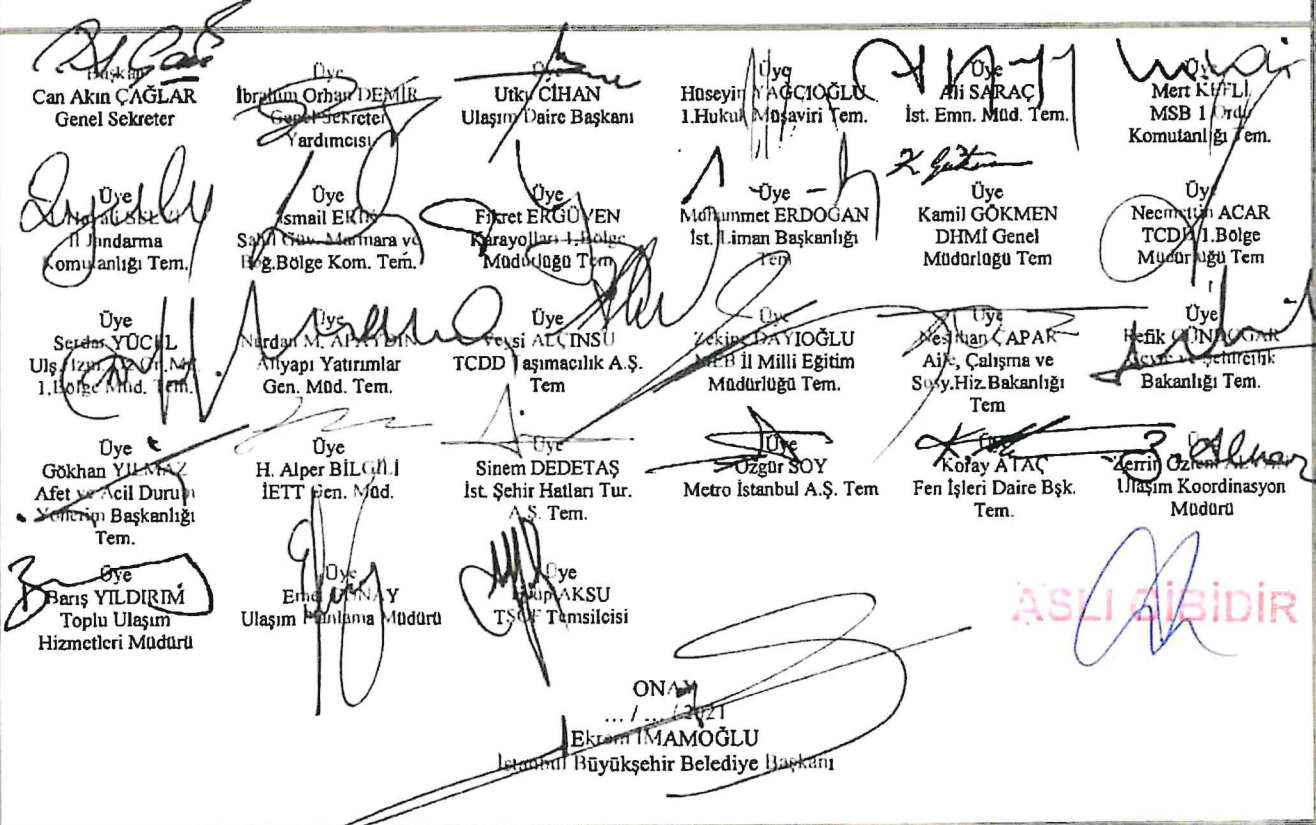 Başkan
Can Akın ÇAĞLAR
Genel Sekreter
Üye
İbrahim Orhan DEMİR
Genel Sekreter
Yardımcısı
Üye
Utku CİHAN
Ulaşım Daire Başkanı
Üye
Hüseyin YAĞCIOĞLU
1.Hukuk Müşaviri Tem.
Üye
Ali SARAÇ
İst. Emn. Müd. Tem.
Üye
Mert KEFLİ
MSB 1 Ordu
Komutanlığı Tem.
İl Jandarma
Komutanlığı Tem.
Üye
İsmail
Sahil Güv. Marmara ve
Boğ.Bölge Kom. Tem.
Üye
Fikret ERGÜVEN
Karayolları 1.Bölge
Müdürlüğü Tem
Üye
Muhammet ERDOĞAN
İst. Liman Başkanlığı
Tem
K. Gökmen
Üye
Kamil GÖKMEN
DHMİ Genel
Müdürlüğü Tem
Üye
Necmettin ACAR
TCDD 1.Bölge
Müdürlüğü Tem
Üye
Serdar YÜCEL
1.Bölge Müd. Tem.
Üye
Nurdan M.
Altyapı Yatırımlar
Gen. Müd. Tem.
Üye
Veysi ALÇINSU
TCDD Taşımacılık A.Ş.
Tem
Üye
Zekine DAYIOĞLU
MEB İl Milli Eğitim
Müdürlüğü Tem.
Üye
Neslihan ÇAPAR
Aile, Çalışma ve
Sosy.Hiz.Bakanlığı
Tem
Üye
Refik GÜNDOĞAR
Çevre ve Şehircilik
Bakanlığı Tem.
Üye
Gökhan YILMAZ
Afet ve Acil Durum
Yönetim Başkanlığı
Tem.
Üye
H. Alper BİLGİLİ
İETT Gen. Müd.
Üye
Sinem DEDETAŞ
İst. Şehir Hatları Tur.
A.Ş. Tem.
Üye
Özgür SOY
Metro İstanbul A.Ş. Tem
Üye
Koray ATAÇ
Fen İşleri Daire Bşk.
Tem.
Üye
Zerrin Özlem
Ulaşım Koordinasyon
Müdürü
Üye
Barış YILDIRIM
Toplu Ulaşım
Hizmetleri Müdürü
Üye
Ulaşım Planlama Müdürü
Üye
AKSU
TŞOF Temsilcisi
ASLI GİBİDİR
ONAY
... / ... / 2021
Ekrem İMAMOĞLU
İstanbul Büyükşehir Belediye Başkanı